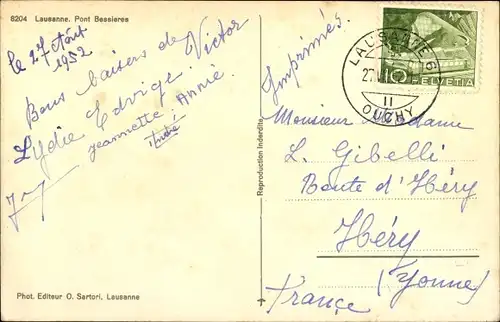 8204 Lausanne. Pont Bessieres
le 27 Août
1952
Bons baisers de Victor
Lydie Edvige
Jeannette Annie
André
Phot. Editeur O. Sartori, Lausanne
Reproduction Interdite
Imprimés.
LAUSANNE 6
27
II
OUCHY
10
HELVETIA
Monsieur Madame
L. Gibelli
Route d'Héry
Héry
(Yonne)
France